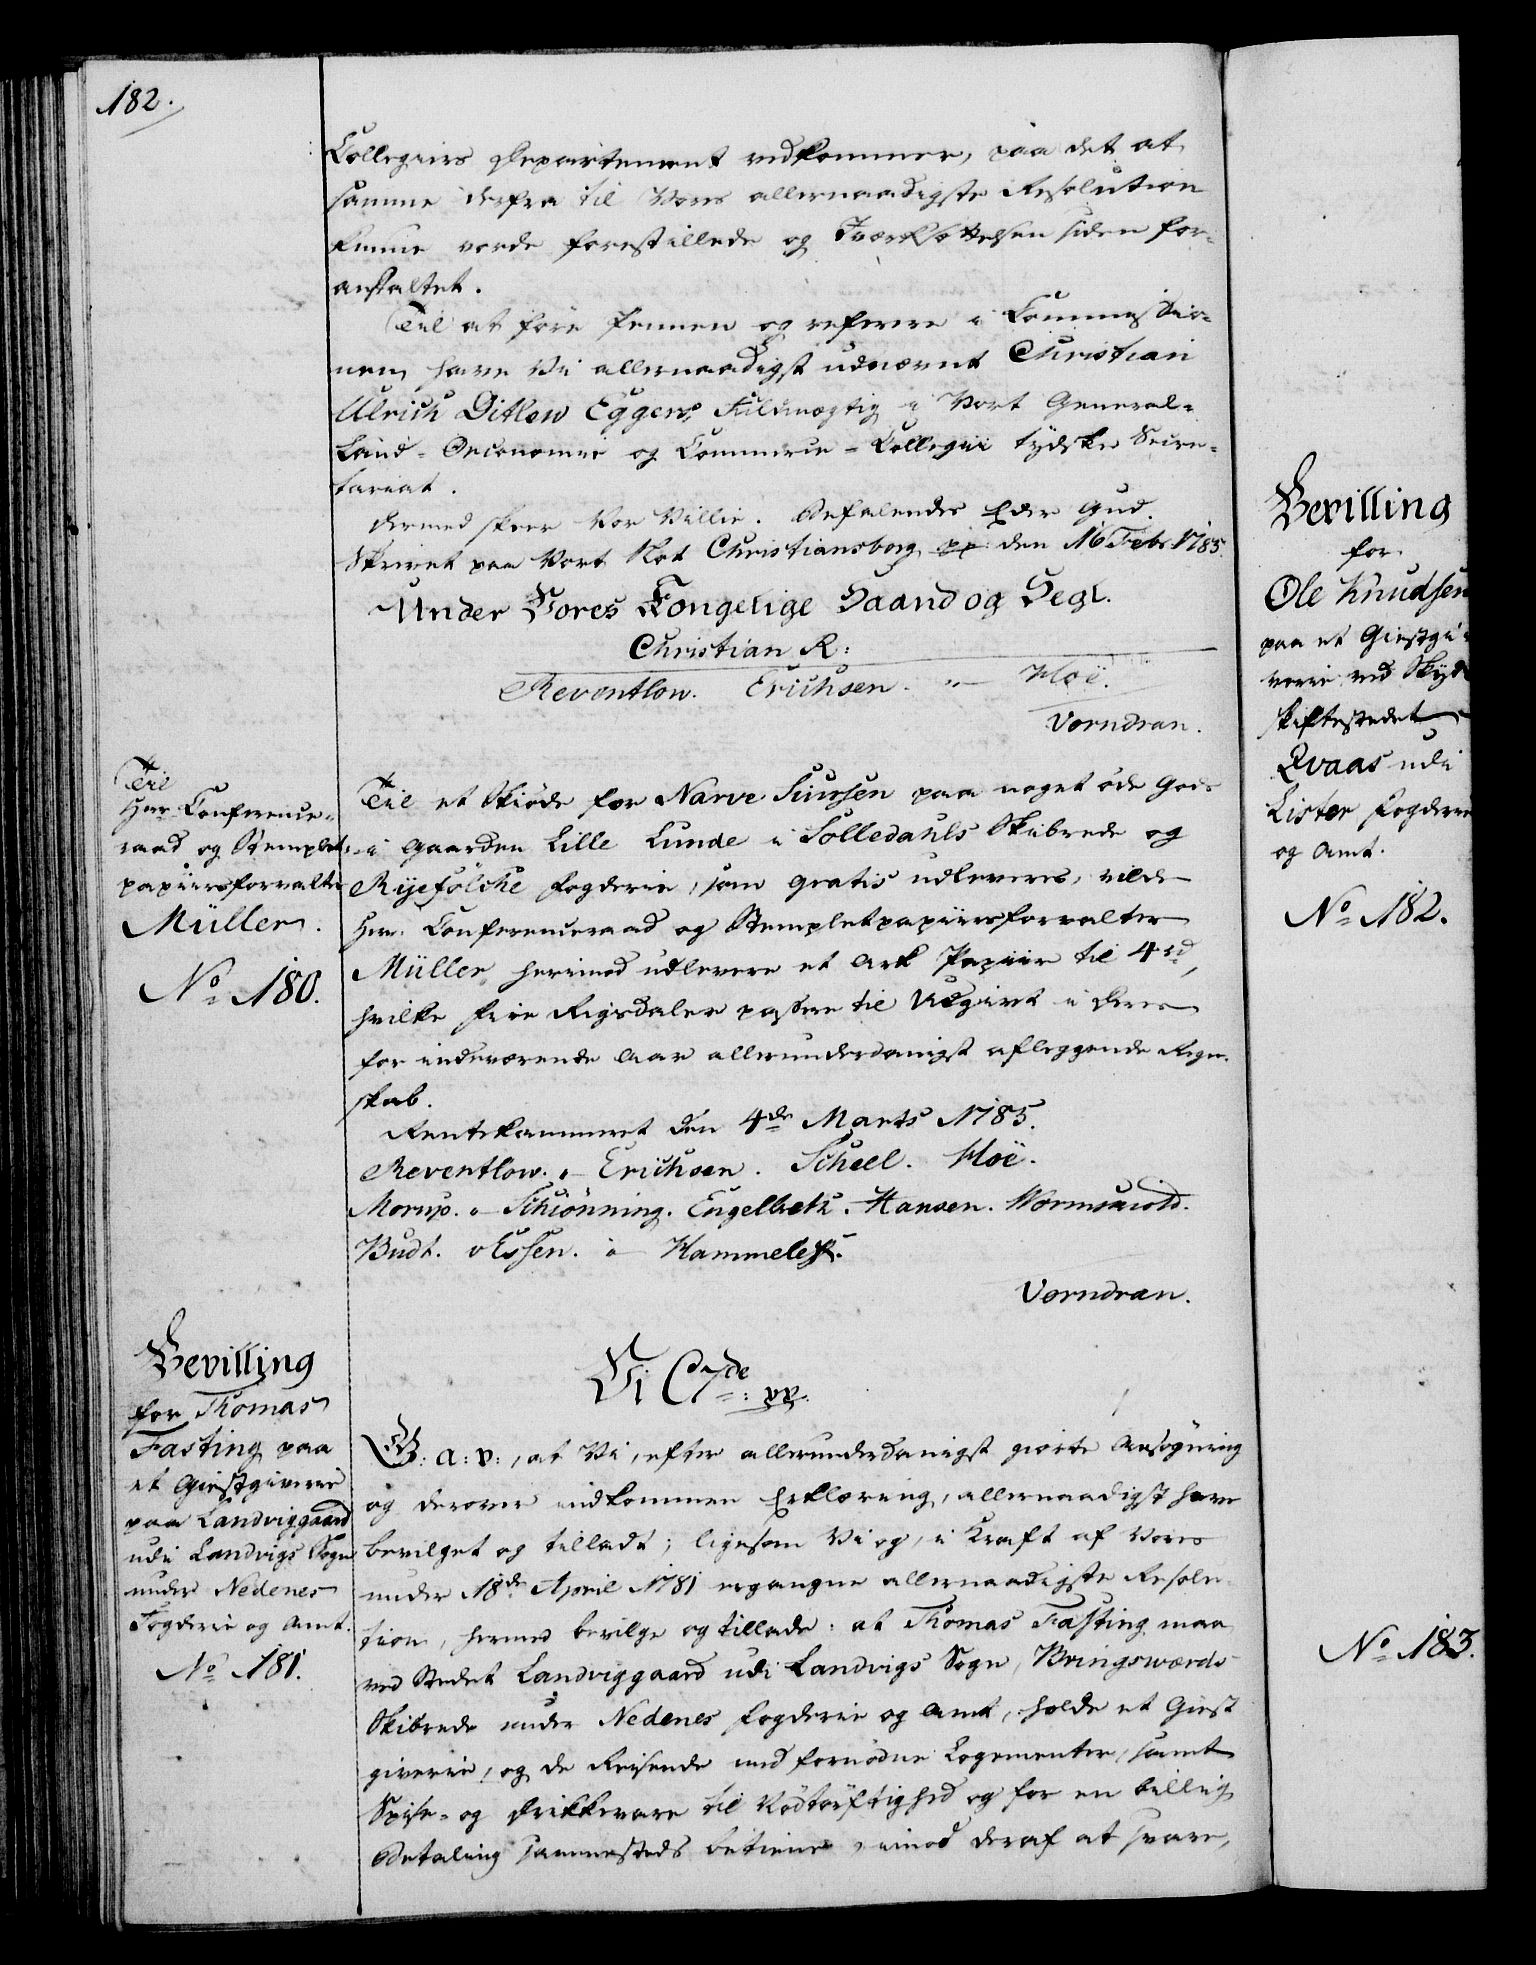 182.
Collegiers Departement vedkommer, paa det at
samme derfra til Vores allernaadigste Resolution
kunne vorde forestillede og Iværksættelsen siden for-
anstaltet.
Til at före Pennen og referere i Commissio-
nen, have Vi allernaadigst udnævnt Christian
Ulrich Ditlew Eggers, Fuldmægtig i Vort General-
Land-Oeconomie og Commerce-Collegii tydske Secre-
tariat.
Dermed skeer Vor Villie. Befalendes Eder Gud.
Skrevet paa Vort Slot Christiansborg pp den 16 Febr 1785.
Under Vores Kongelige Haand og Segl.
Christian R:
Reventlow. Erichsen. Hoë.
Vorndran.
Til
Herr Conference-
raad og Stemplet-
papiirsforvalter
Müller.
No 180.
Til et Skiöde for Narve Siursen paa noget öde Gods
i Gaarden Lille Lunde i Solledahls Skibrede og
Ryefölcke Fogderie, som gratis udleveres, vilde
Herr Conferenceraad og Stempletpapiirsforvalter
Müller, herimod udlevere et Ark Papiir til 4 rd,
hvilke fire Rigsdaler passere til Udgivt i Deres
for indeværende Aar allerunderdanigst aflæggende Regn-
skab.
Rentekammeret den 4de Marts 1785.
Reventlow. Erichsen. Scheel. Hoë.
Morup. Schiönning. Engelbreth. Hansen. Wormskiold.
Budt. v Essen. Hammeleff.
Vorndran.
Bevilling
for Thomas
Fasting paa
et Giestgiverie
paa Landviggaard
udi Landvigs Sogn
under Nedenes
Fogderie og Amt.
No 181.
Vi C 7de: pp.
G: a: v:, at Vi, efter allerunderdanigst giorte Ansögning
og derover indkommen Erklæring, allernaadigst have
bevilget og tilladt; ligesom Vi og, i Kraft af Vores
under 18de April 1781 ergangne allernaadigste Resolu-
tion, hermed bevilge og tillade: at Thomas Fasting maa
ved Stedet Landviggaard udi Landvigs Sogn, Bringsværds
Skibrede under Nedenes Fogderie og Amt, holde et Giest-
giverie, og de Reisende med fornödne Logementer, samt
Spise- og Drikkevare til Nödtörftighed og for en billig
Betaling sammesteds betiene, imod deraf at svare,
Bevilling
for
Ole Knudsen
paa et Giestgi-
verie ved Skyds
skiftestedet
Qvaas udi
Lister Fogderie
og Amt.
No 182.
No 183.